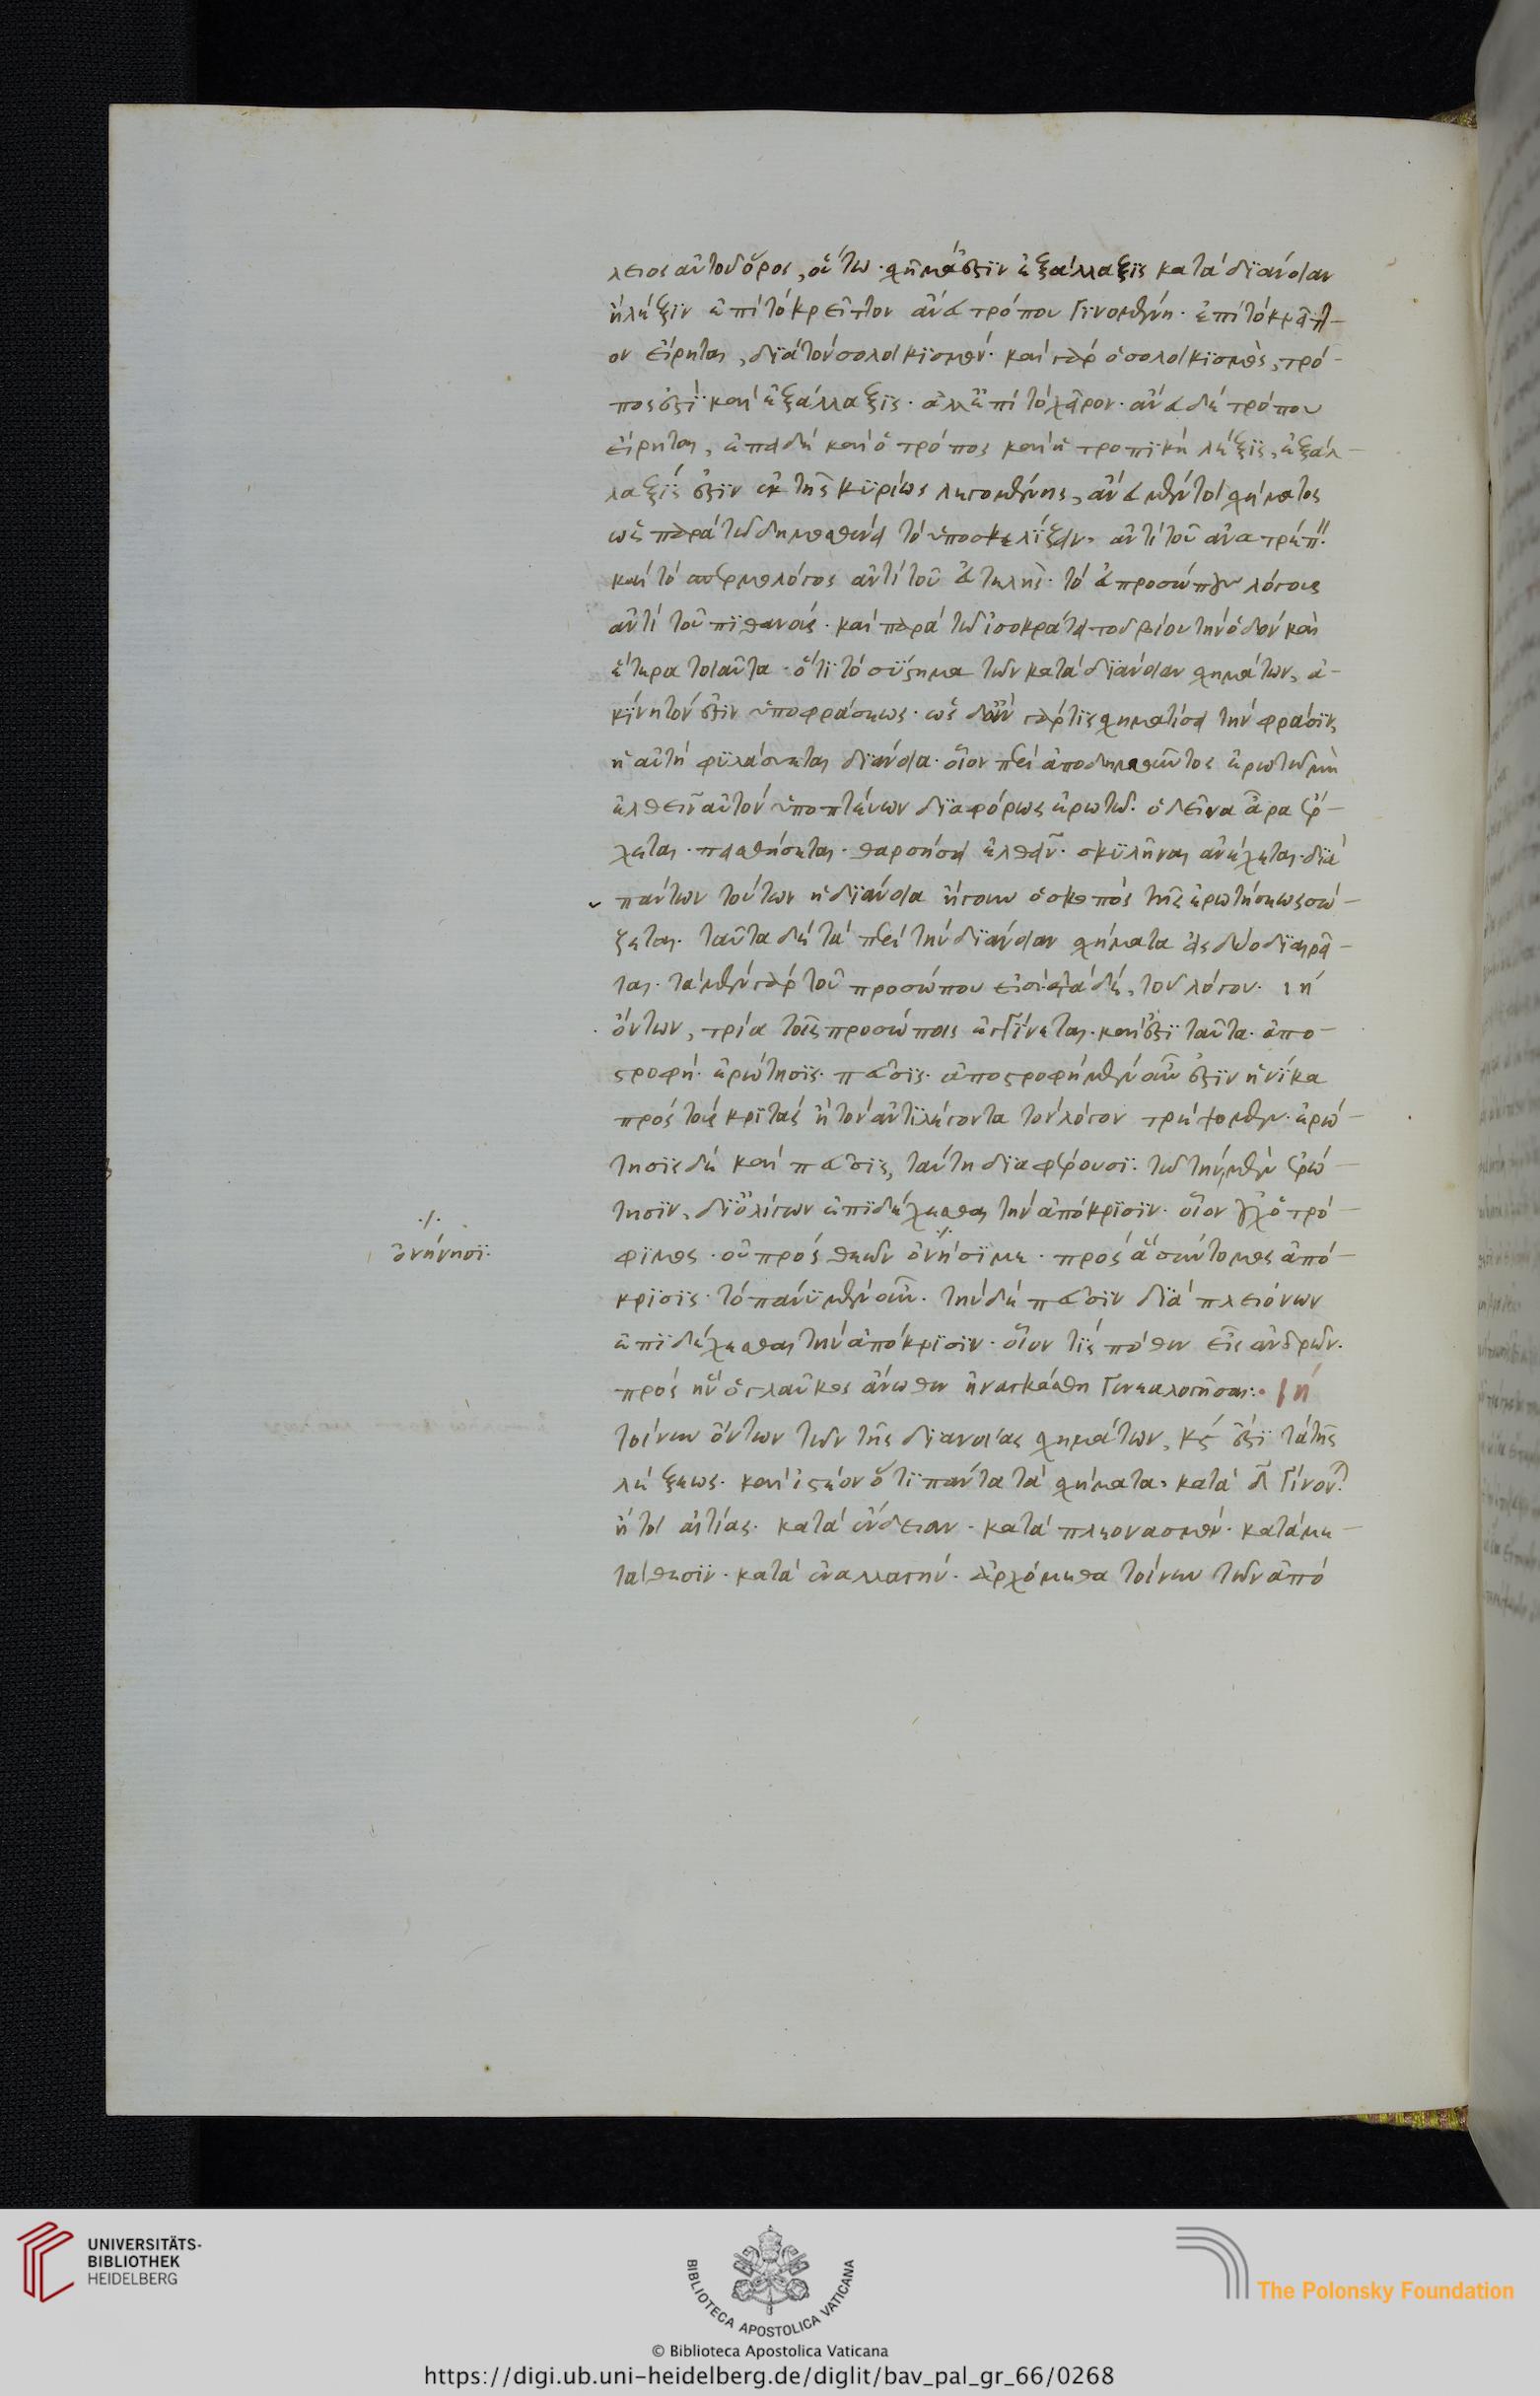 λειος αὐτοῦ ὅρος, οὕτω· σχῆμά ἐστιν ἐξάλλαξις κατὰ διάνοιαν
ἢ λέξιν ἐπὶ τὸ κρεῖττον ἄνευ τρόπου γινομένη· ἐπὶ τὸ κρεῖττ-
ον εἴρηται, διὰ τὸν σολοικισμόν· καὶ γὰρ ὁ σολοικισμὸς, τρό-
πος ἐστὶ καὶ ἐξάλλαξις· ἀλλ' ἐπὶ τὸ χεῖρον· ἄνευ δὲ τρόπου
εἴρηται, ἐπειδὴ καὶ ὁ τρόπος καὶ ἡ τροπικὴ λέξις, ἐξάλ-
λαξίς ἐστιν ἐκ τῆς κυρίως λεγομένης, ἄνευ μέντοι σχήματος
ὡς παρὰ τῷ δημοσθένει τὸ ὑποσκελίζειν· ἀντὶ τοῦ ἀνατρέπειν·
καὶ τὸ λόγος ἀντὶ τοῦ ἀτελής· τὸ εὐπροσώπων λόγους
ἀντὶ τοῦ πιθανούς· καὶ παρὰ τῷ ἰσοκράτει τοῦ βίου τὴν ὁδόν καὶ
ἕτερα τοιαῦτα· ὅτι τὸ σύστημα τῶν κατὰ διάνοιαν σχημάτων, ἀ-
κίνητόν ἐστιν ὑπὸ φράσεως· ὡς δ' ἂν γάρ τις σχηματίσει τὴν φράσιν,
ἡ αὐτὴ φυλάσσεται διάνοια· οἷον περὶ ἀποδημοῦντος ἐρωτῶ μὴ
ἐλθεῖν αὐτὸν ὑποπτεύων διαφόρως ἐρωτῶ· ὁ δεῖνα ἆρα ἔρ-
χεται· πεισθήσεται· θαρσήσει ἐλθεῖν· σκυλῆναι ἀνέχεται· διὰ
πάντων τούτων ἡ διάνοια ἤγουν ὁ σκοπὸς τῆς ἐρωτήσεως σώ-
ζεται· ταῦτα δὲ τὰ περὶ τὴν διάνοιαν σχήματα εἰς δύο διαιρεῖ-
ται· τὰ μὲν γὰρ τοῦ προσώπου εἰσί· τὰ δὲ, τοῦ λόγου· ιή
ὄντων, τρία τοῖς προσώποις ἐγγίνεται· καὶ ἔστι ταῦτα· ἀπο-
στροφή· ἐρώτησις· πεῦσις· ἀποστροφὴ μὲν οὖν ἐστιν ἡνίκα
πρὸς τοὺς κριτὰς ἢ τὸν ἀντιλέγοντα τὸν λόγον τρέψομεν· ἐρώ-
τησις δὲ καὶ πεῦσις, ταύτῃ διαφέρουσι· τῷ τὴν μὲν ἐρώ-
τησιν, δι' ὀλίγων ἐπιδέχεσθαι τὴν ἀπόκρισιν· οἷον ἔχ' ὁ τρό-
φιμος· οὐ πρὸς θεῶν ὀνήσιμε· πρὸς ἃ σύντομος ἀπό-
κρισις· τὸ πάνυ μὲν οὖν· τὴν δὲ πεῦσιν διὰ πλειόνων
ἐπιδέχεσθαι τὴν ἀπόκρισιν· οἷον τίς πόθεν εἶς ἀνδρῶν·
πρὸς ἣν ὁ γλαῦκος ἄνωθεν ἠναγκάσθη γενεαλογῆσαι· ιή
τοίνυν ὄντων τῶν τῆς διανοίας σχημάτων, κϛ ἐστὶ τὰ τῆς
λέξεως· καὶ ἰστέον ὅτι πάντα τὰ σχήματα, κατὰ δ̄ γίνονται
ἤτοι αἰτίας· κατὰ ἔνδειαν· κατὰ πλεονασμόν· κατὰ με-
τάθεσιν· κατὰ ἐναλλαγήν· ἀρχόμεθα τοίνυν τῶν ἀπὸ
ὀνήνησι·
UNIVERSITÄTS-
BIBLIOTHEK
HEIDELBERG
BIBLIOTECA APOSTOLICA VATICANA
The Polonsky Foundation
© Biblioteca Apostolica Vaticana
https://digi.ub.uni-heidelberg.de/diglit/bav_pal_gr_66/0268